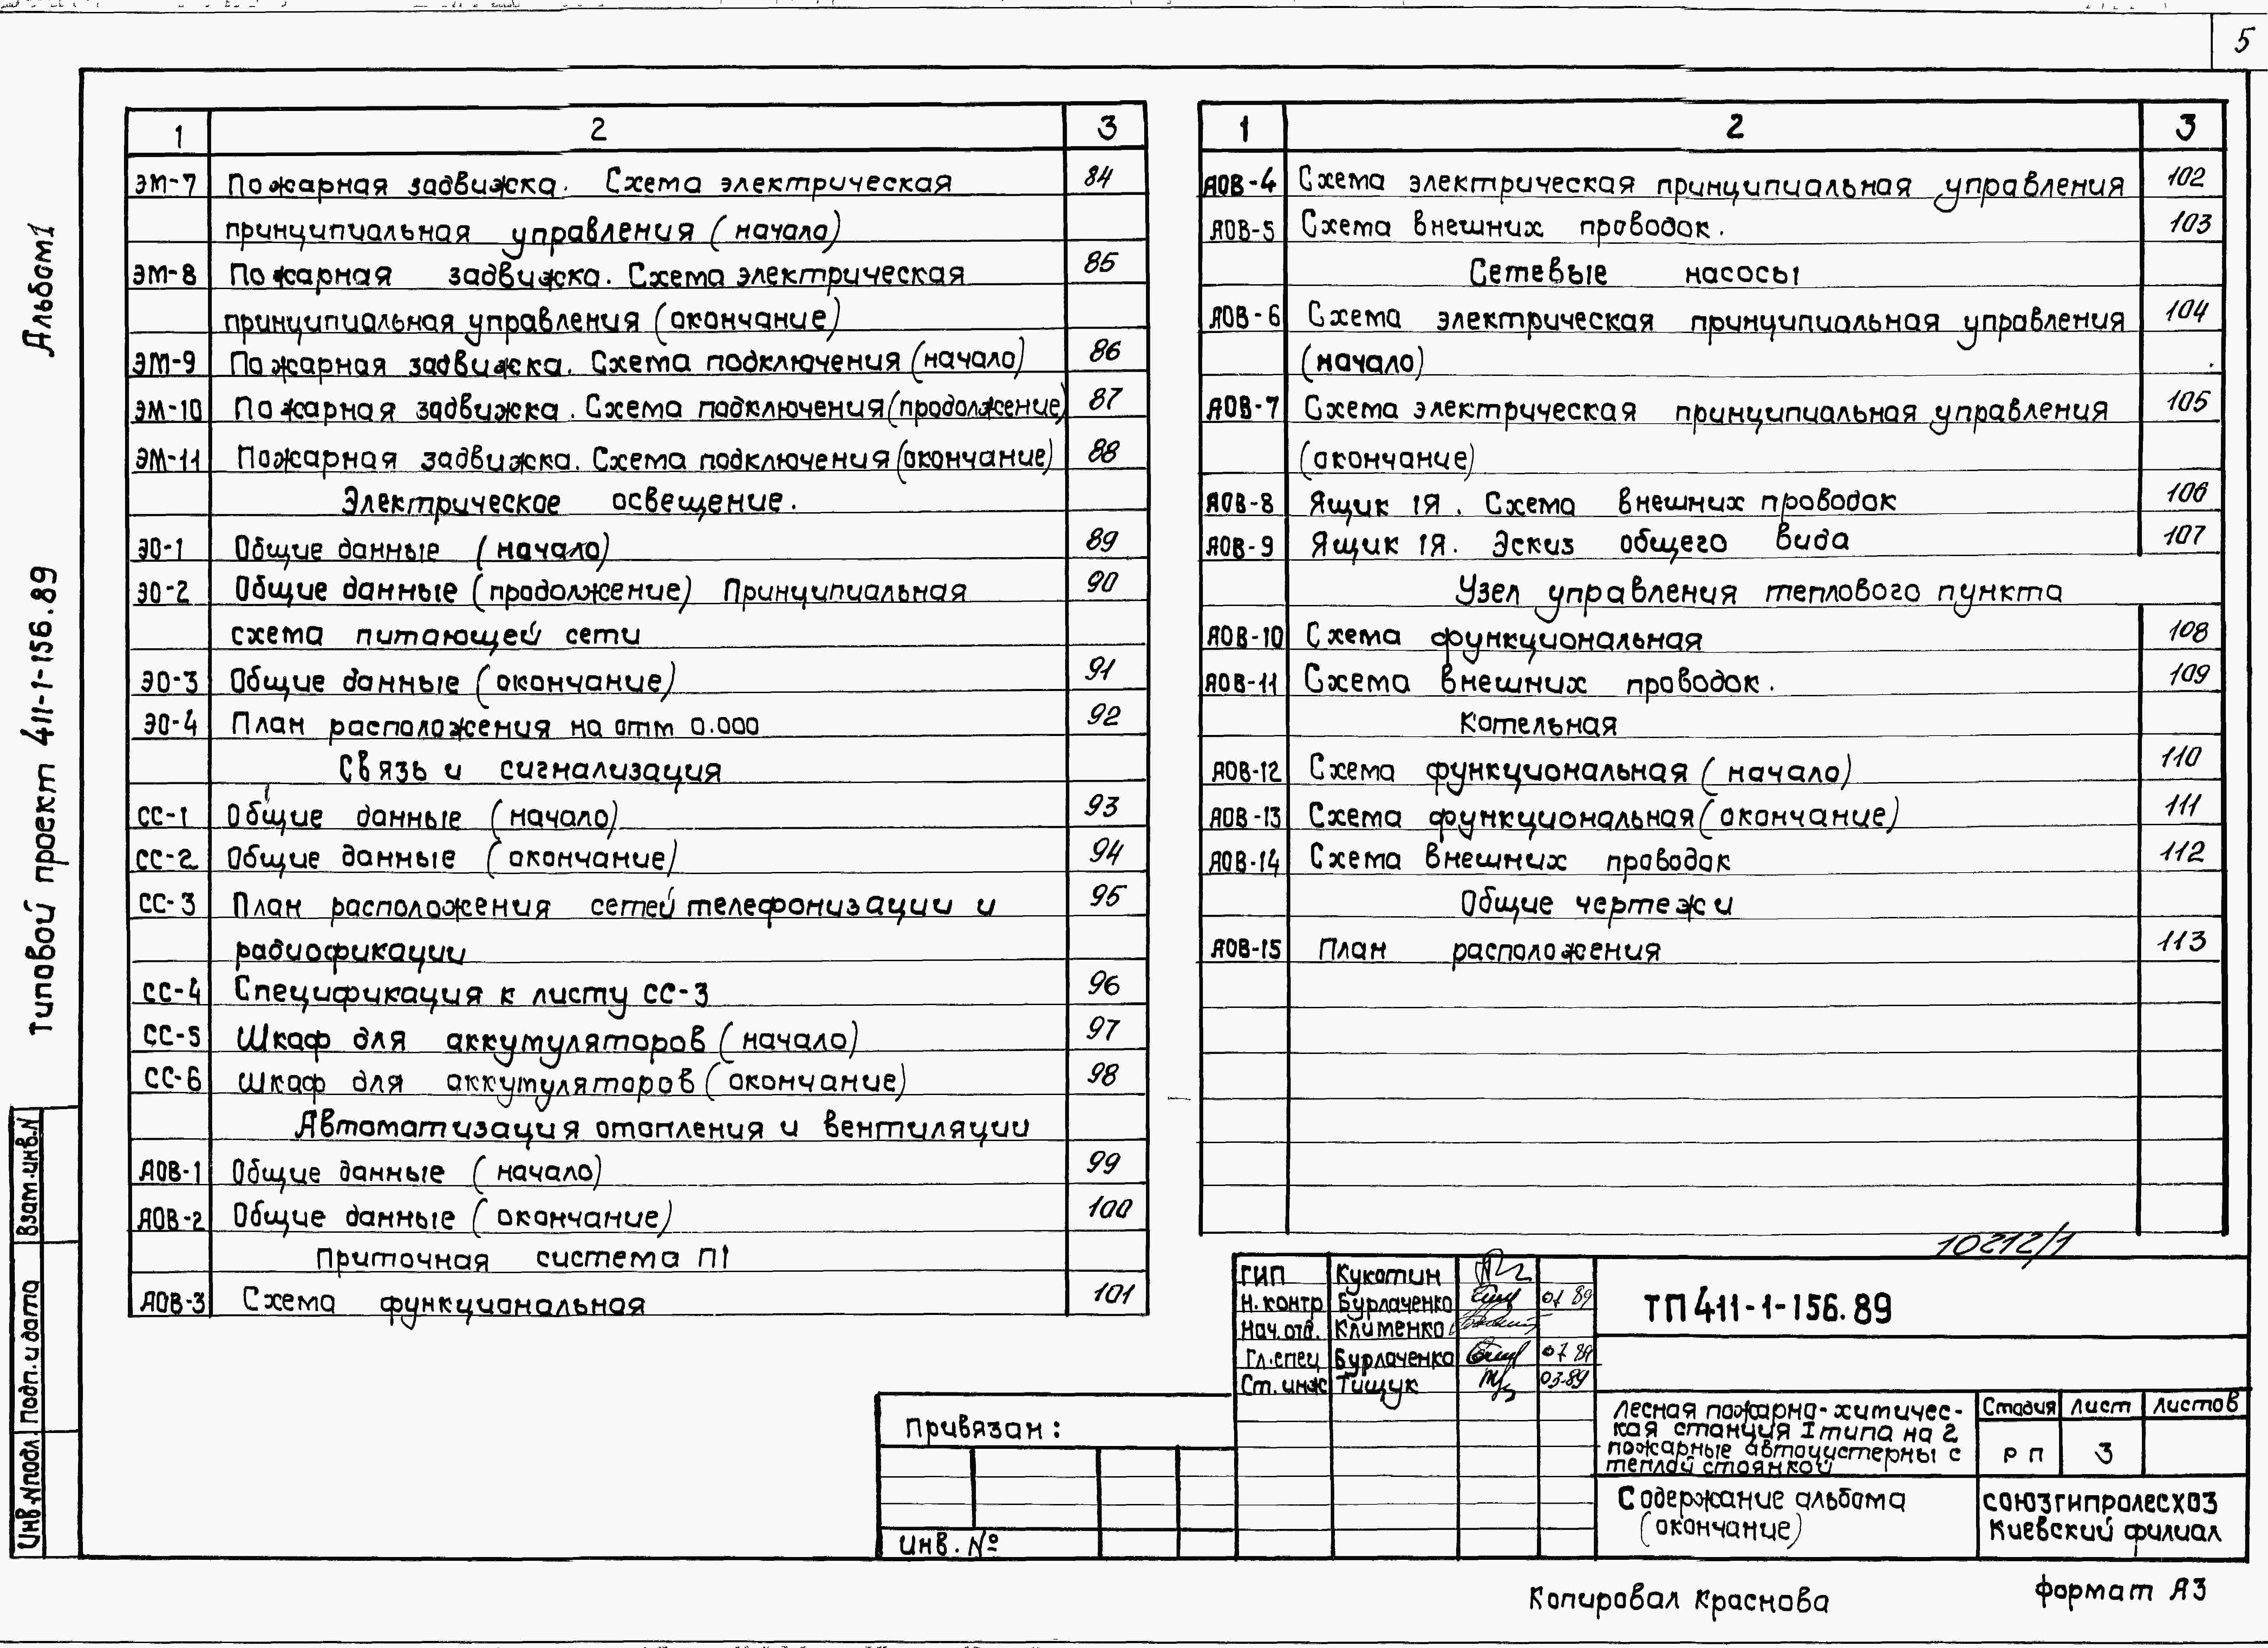 5
Альбом 1
Типовой проект 411-1-156.89
Взам.инв.N
Подп.и дата
Инв.Nподл.
1 2 3
ЭМ-7 Пожарная задвижка. Схема электрическая 84
принципиальная управления (начало)
ЭМ-8 Пожарная задвижка. Схема электрическая 85
принципиальная управления (окончание)
ЭМ-9 Пожарная задвижка. Схема подключения (начало) 86
ЭМ-10 Пожарная задвижка. Схема подключения (продолжение) 87
ЭМ-11 Пожарная задвижка. Схема подключения (окончание) 88
Электрическое освещение.
ЭО-1 Общие данные (начало) 89
ЭО-2 Общие данные (продолжение) Принципиальная 90
схема питающей сети
ЭО-3 Общие данные (окончание) 91
ЭО-4 План расположения на отм 0.000 92
Связь и сигнализация
СС-1 Общие данные (начало) 93
СС-2 Общие данные (окончание) 94
СС-3 План расположения сетей телефонизации и 95
радиофикации
СС-4 Спецификация к листу СС-3 96
СС-5 Шкаф для аккумуляторов (начало) 97
СС-6 Шкаф для аккумуляторов (окончание) 98
Автоматизация отопления и вентиляции
АОВ-1 Общие данные (начало) 99
АОВ-2 Общие данные (окончание) 100
Приточная система П1
АОВ-3 Схема функциональная 101
1 2 3
АОВ-4 Схема электрическая принципиальная управления 102
АОВ-5 Схема внешних проводок. 103
Сетевые насосы
АОВ-6 Схема электрическая принципиальная управления 104
(начало)
АОВ-7 Схема электрическая принципиальная управления 105
(окончание)
АОВ-8 Ящик 1Я. Схема внешних проводок 106
АОВ-9 Ящик 1Я. Эскиз общего вида 107
Узел управления теплового пункта
АОВ-10 Схема функциональная 108
АОВ-11 Схема внешних проводок. 109
Котельная
АОВ-12 Схема функциональная (начало) 110
АОВ-13 Схема функциональная (окончание) 111
АОВ-14 Схема внешних проводок 112
Общие чертежи
АОВ-15 План расположения 113
10212/1
ГИП Кукотин
Н.контр Бурлаченко 07 89
Нач.отд. Клименко
Гл.спец Бурлаченко 07 89
Ст.инж Тищук 03.89
ТП 411-1-156.89
Лесная пожарно-химичес-
кая станция I типа на 2
пожарные автоцистерны с
теплой стоянкой
Стадия Лист Листов
РП 3
Содержание альбома
(окончание)
СОЮЗГИПРОЛЕСХОЗ
Киевский филиал
Привязан:
Инв. №
Копировал Краснова
Формат А3